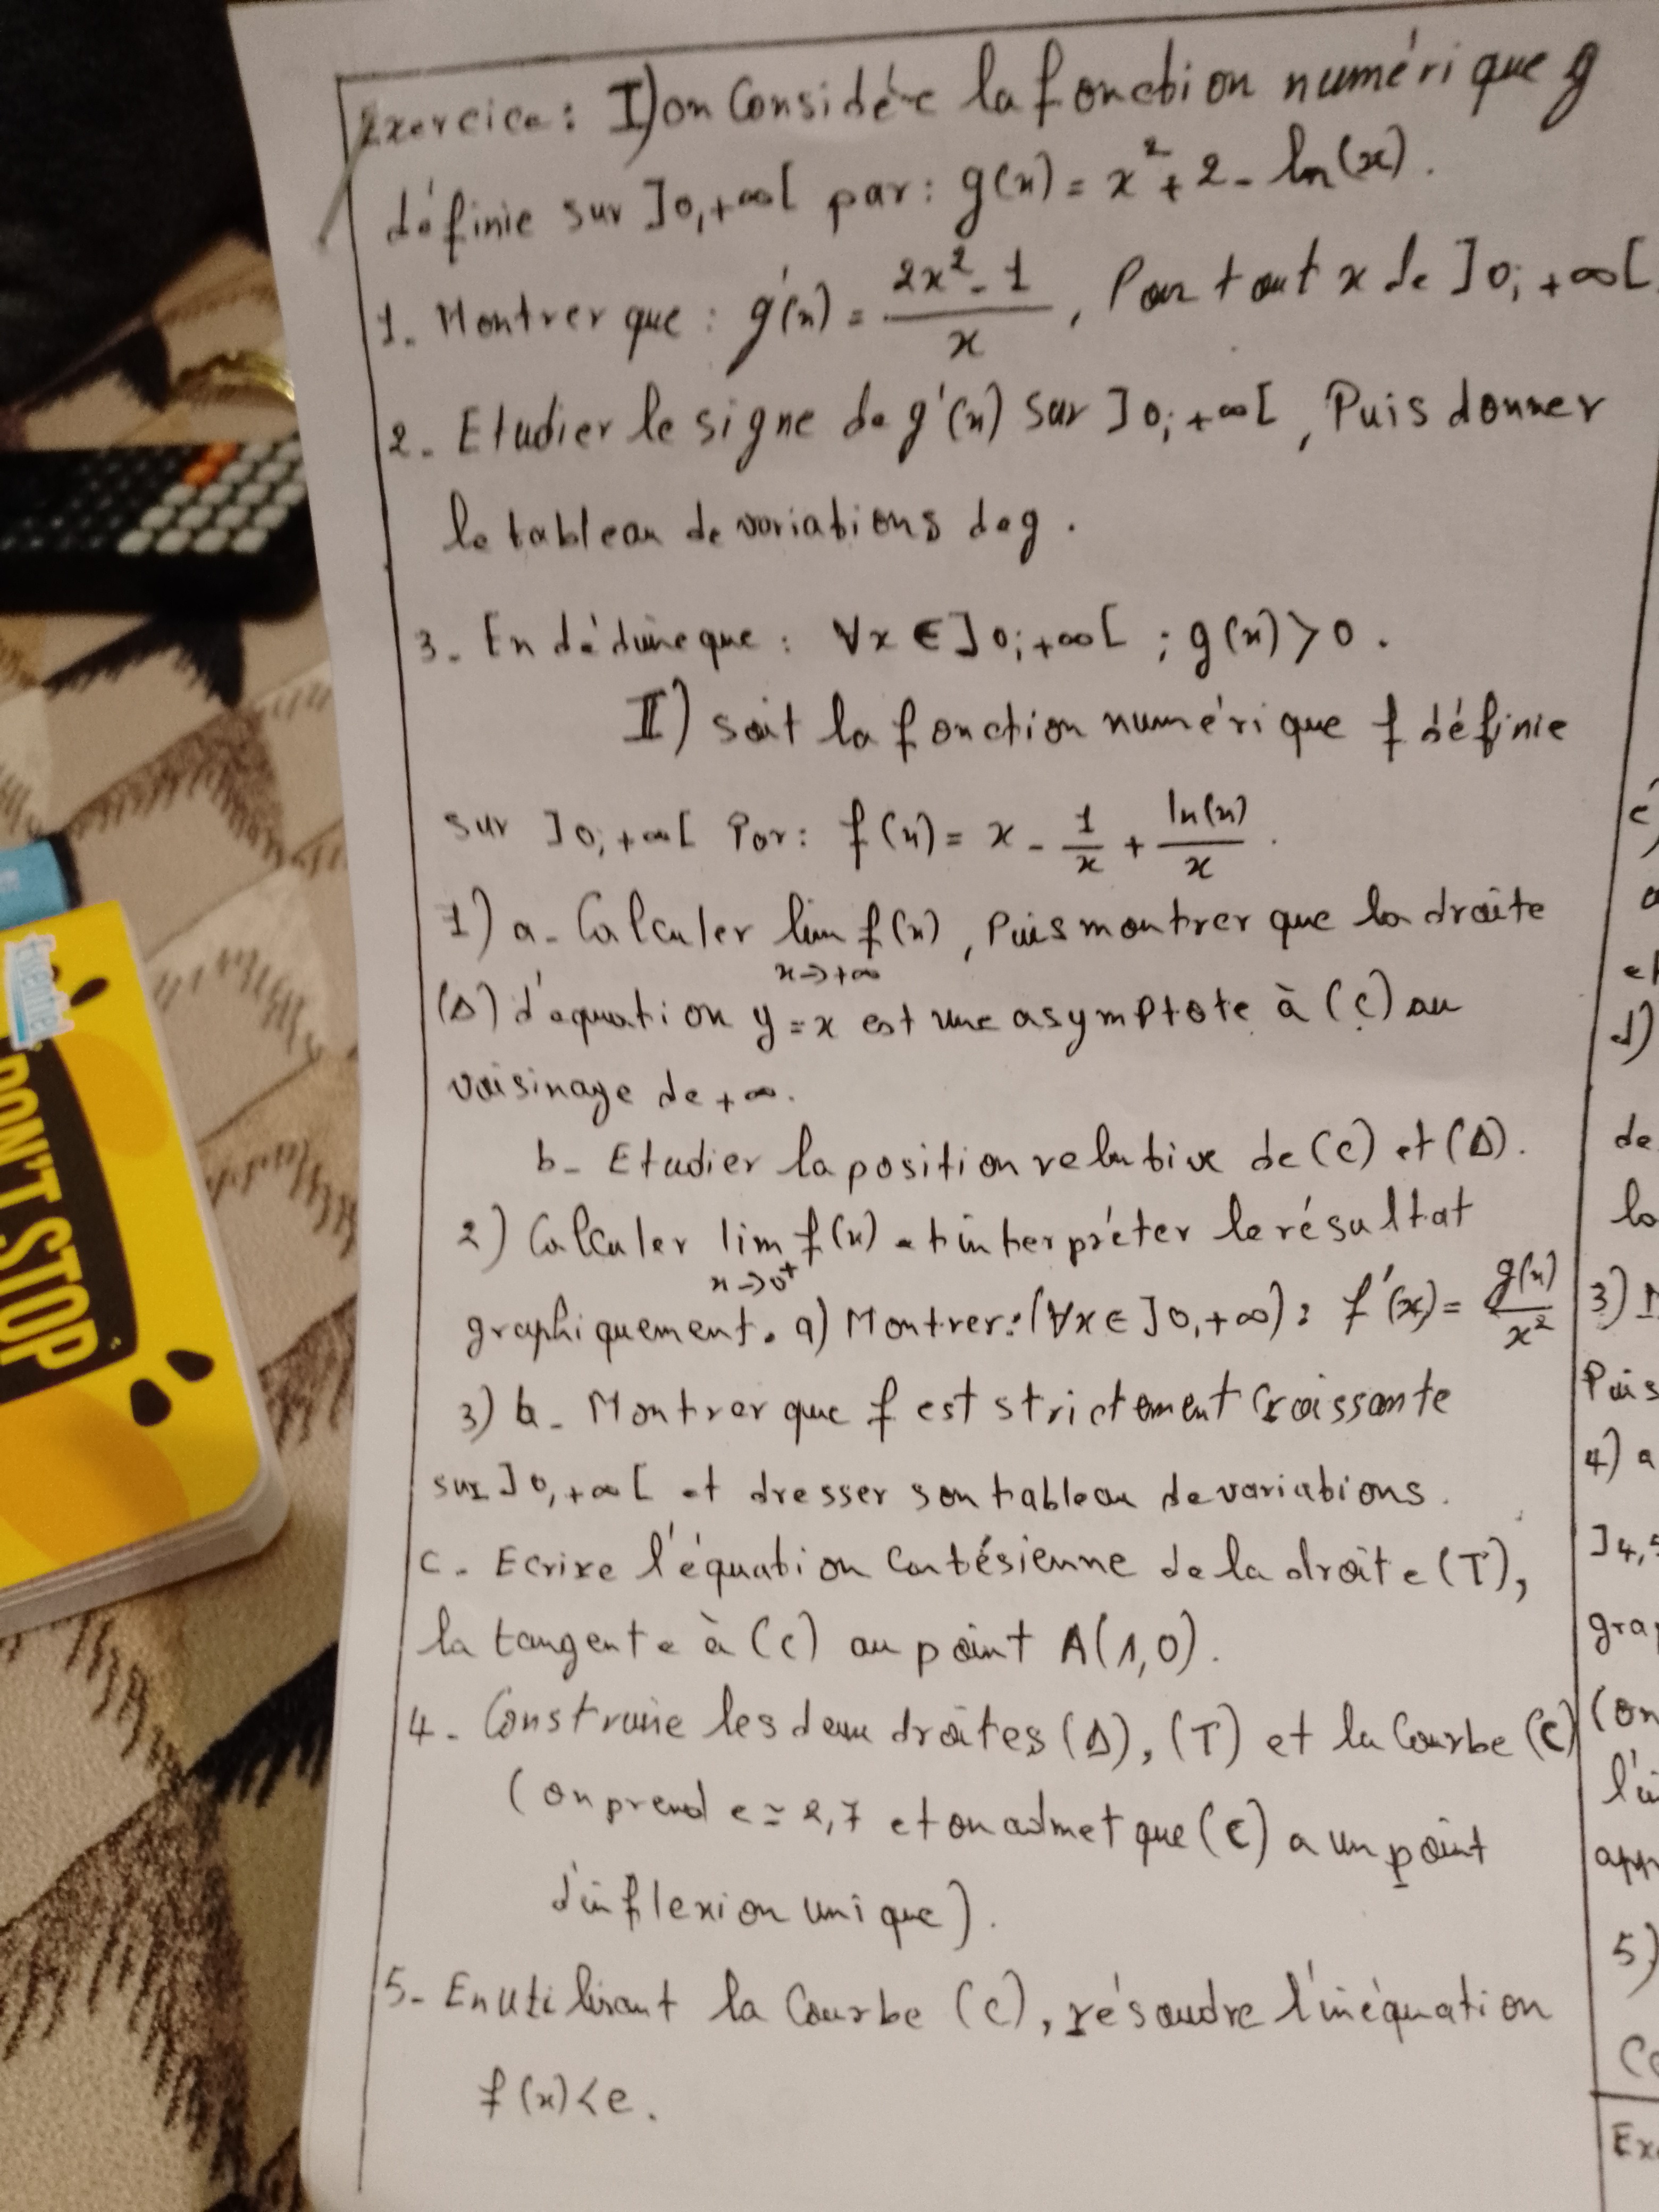 Exercice: I) on Considére la fonction numérique g
définie sur ]0,+∞[ par: g(x) = x² + 2 - ln(x).
1. Montrer que: g'(x) = (2x² - 1)/x, Pour tout x de ]0;+∞[
2. Etudier le signe de g'(x) sur ]0;+∞[, Puis donner
le tableau de variations de g.
3. En déduire que: ∀x ∈ ]0;+∞[ ; g(x) > 0.
II) soit la fonction numérique f définie
sur ]0;+∞[ Par: f(x) = x - 1/x + ln(x)/x.
1) a- Calculer lim f(x), Puis montrer que la droite
x→+∞
(Δ) d'équation y = x est une asymptote à (C) au
voisinage de +∞.
b- Etudier la position relative de (C) et (Δ).
2) Calculer lim f(x) et interpréter le résultat
x→0⁺
graphiquement. a) Montrer: (∀x ∈ ]0,+∞): f'(x) = g(x)/x²
3) b- Montrer que f est strictement croissante
sur ]0,+∞[ et dresser son tableau de variations.
c- Ecrire l'équation cartésienne de la droite (T),
la tangente à (C) au point A(1,0).
4- Construire les deux droites (Δ), (T) et la Courbe (C)
(on prend e ≃ 2,7 et on admet que (C) a un point
d'inflexion unique).
5- En utilisant la Courbe (C), résoudre l'inéquation
f(x) < e.
c)
d)
de
3)
Puis
4) a
]4,5
(on
5)
Essentiel
DON'T STOP